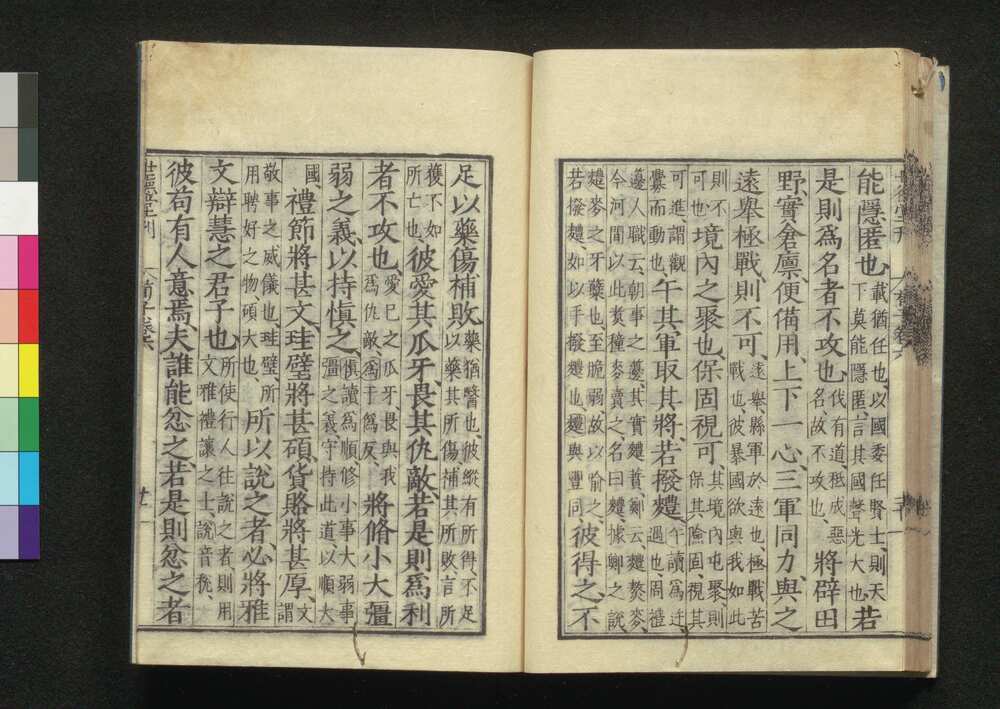 能隱匿也、載猶任也、以國委任賢士、則天
下莫能隱匿、言其國聲光大也、若
是則爲名者不攻也、伐有道秪成惡
名、故不攻也、將辟田
野、實倉廩、便備用、上下一心、三軍同力、與之
遠舉極戰、則不可、遠舉、縣軍於遠也、極戰苦
戰也、彼暴國欲與我如此
則不
可也、境內之聚也、保固視可、其境內屯聚、則
保其險固視其
可進、謂觀
釁而動也、午其軍取其將、若撥麷、午讀爲迕
遇也、周禮
籩人職云、朝事之籩、其實麷蕡、鄭云麷熬麥、
今河間以北煑穜麥賣之、名曰麷、據鄭之說、
麷麥之牙蘖也、至脆弱、故以喻之、
若撥麷如以手撥麷也、麷與豐同、彼得之、不
足以藥傷補敗、藥猶醫也、彼縱有所得、不足
以藥其所傷、補其所敗、言所
獲不如
所亡也、彼愛其爪牙、畏其仇敵、若是則爲利
者不攻也、愛已之爪牙、畏與我
爲仇敵、爲于僞反、將脩小大彊
弱之義、以持愼之、愼讀爲順、修小事大、弱事
彊之義、守持此道、以順大
國、禮節將甚文、珪璧將甚碩、貨賂將甚厚、文
謂
敬事之威儀也、珪璧所
用聘好之物、碩大也、所以說之者、必將雅
文辯慧之君子也、所使行人往說之者、則用
文雅禮讓之士、說音稅、
彼苟有人意焉、夫誰能忿之、若是則忿之者
世德堂刊 荀子卷六 廿一